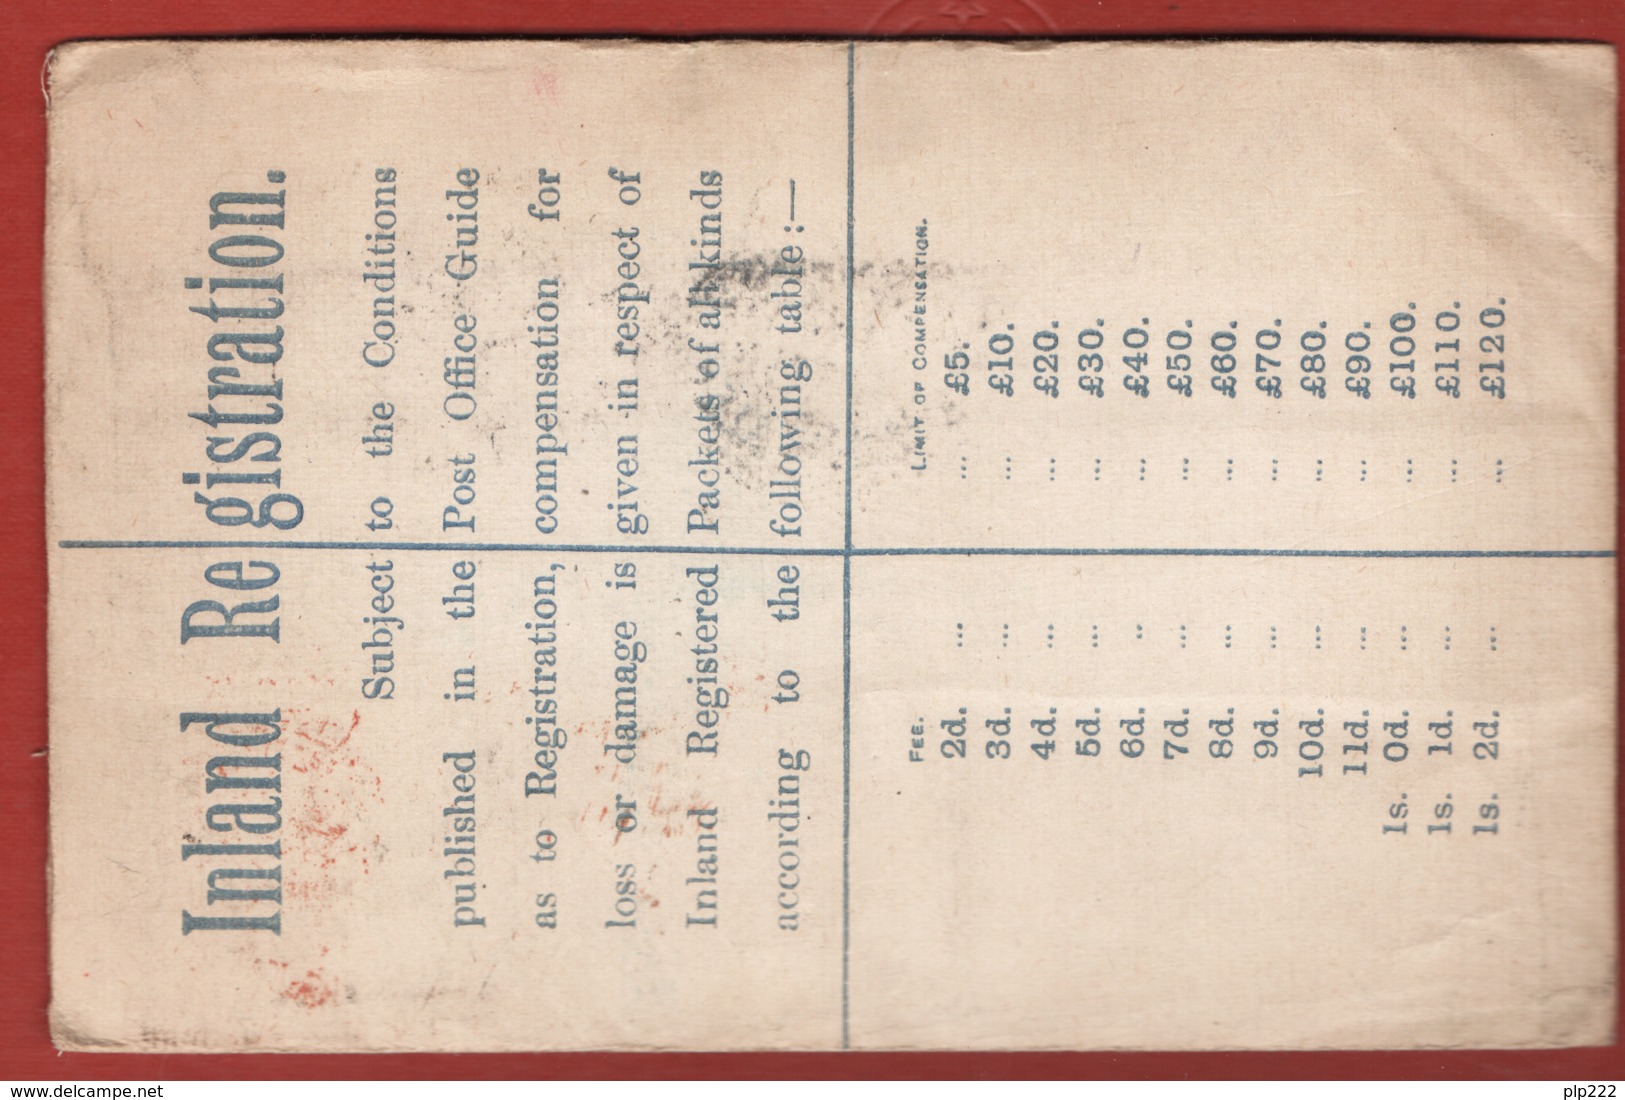 Inland Registration.
Subject to the Conditions
published in the Post Office Guide
as to Registration, compensation for
loss or damage is given in respect of
Inland Registered Packets of all kinds
according to the following table:—
FEE. LIMIT OF COMPENSATION.
2d. ... ... £5.
3d. ... ... £10.
4d. ... ... £20.
5d. ... ... £30.
6d. .. ... £40.
7d. ... ... £50.
8d. ... ... £60.
9d. ... ... £70.
10d. ... ... £80.
11d. ... ... £90.
1s. 0d. ... ... £100.
1s. 1d. ... ... £110.
1s. 2d. ... ... £120.
www.delcampe.net
plp222